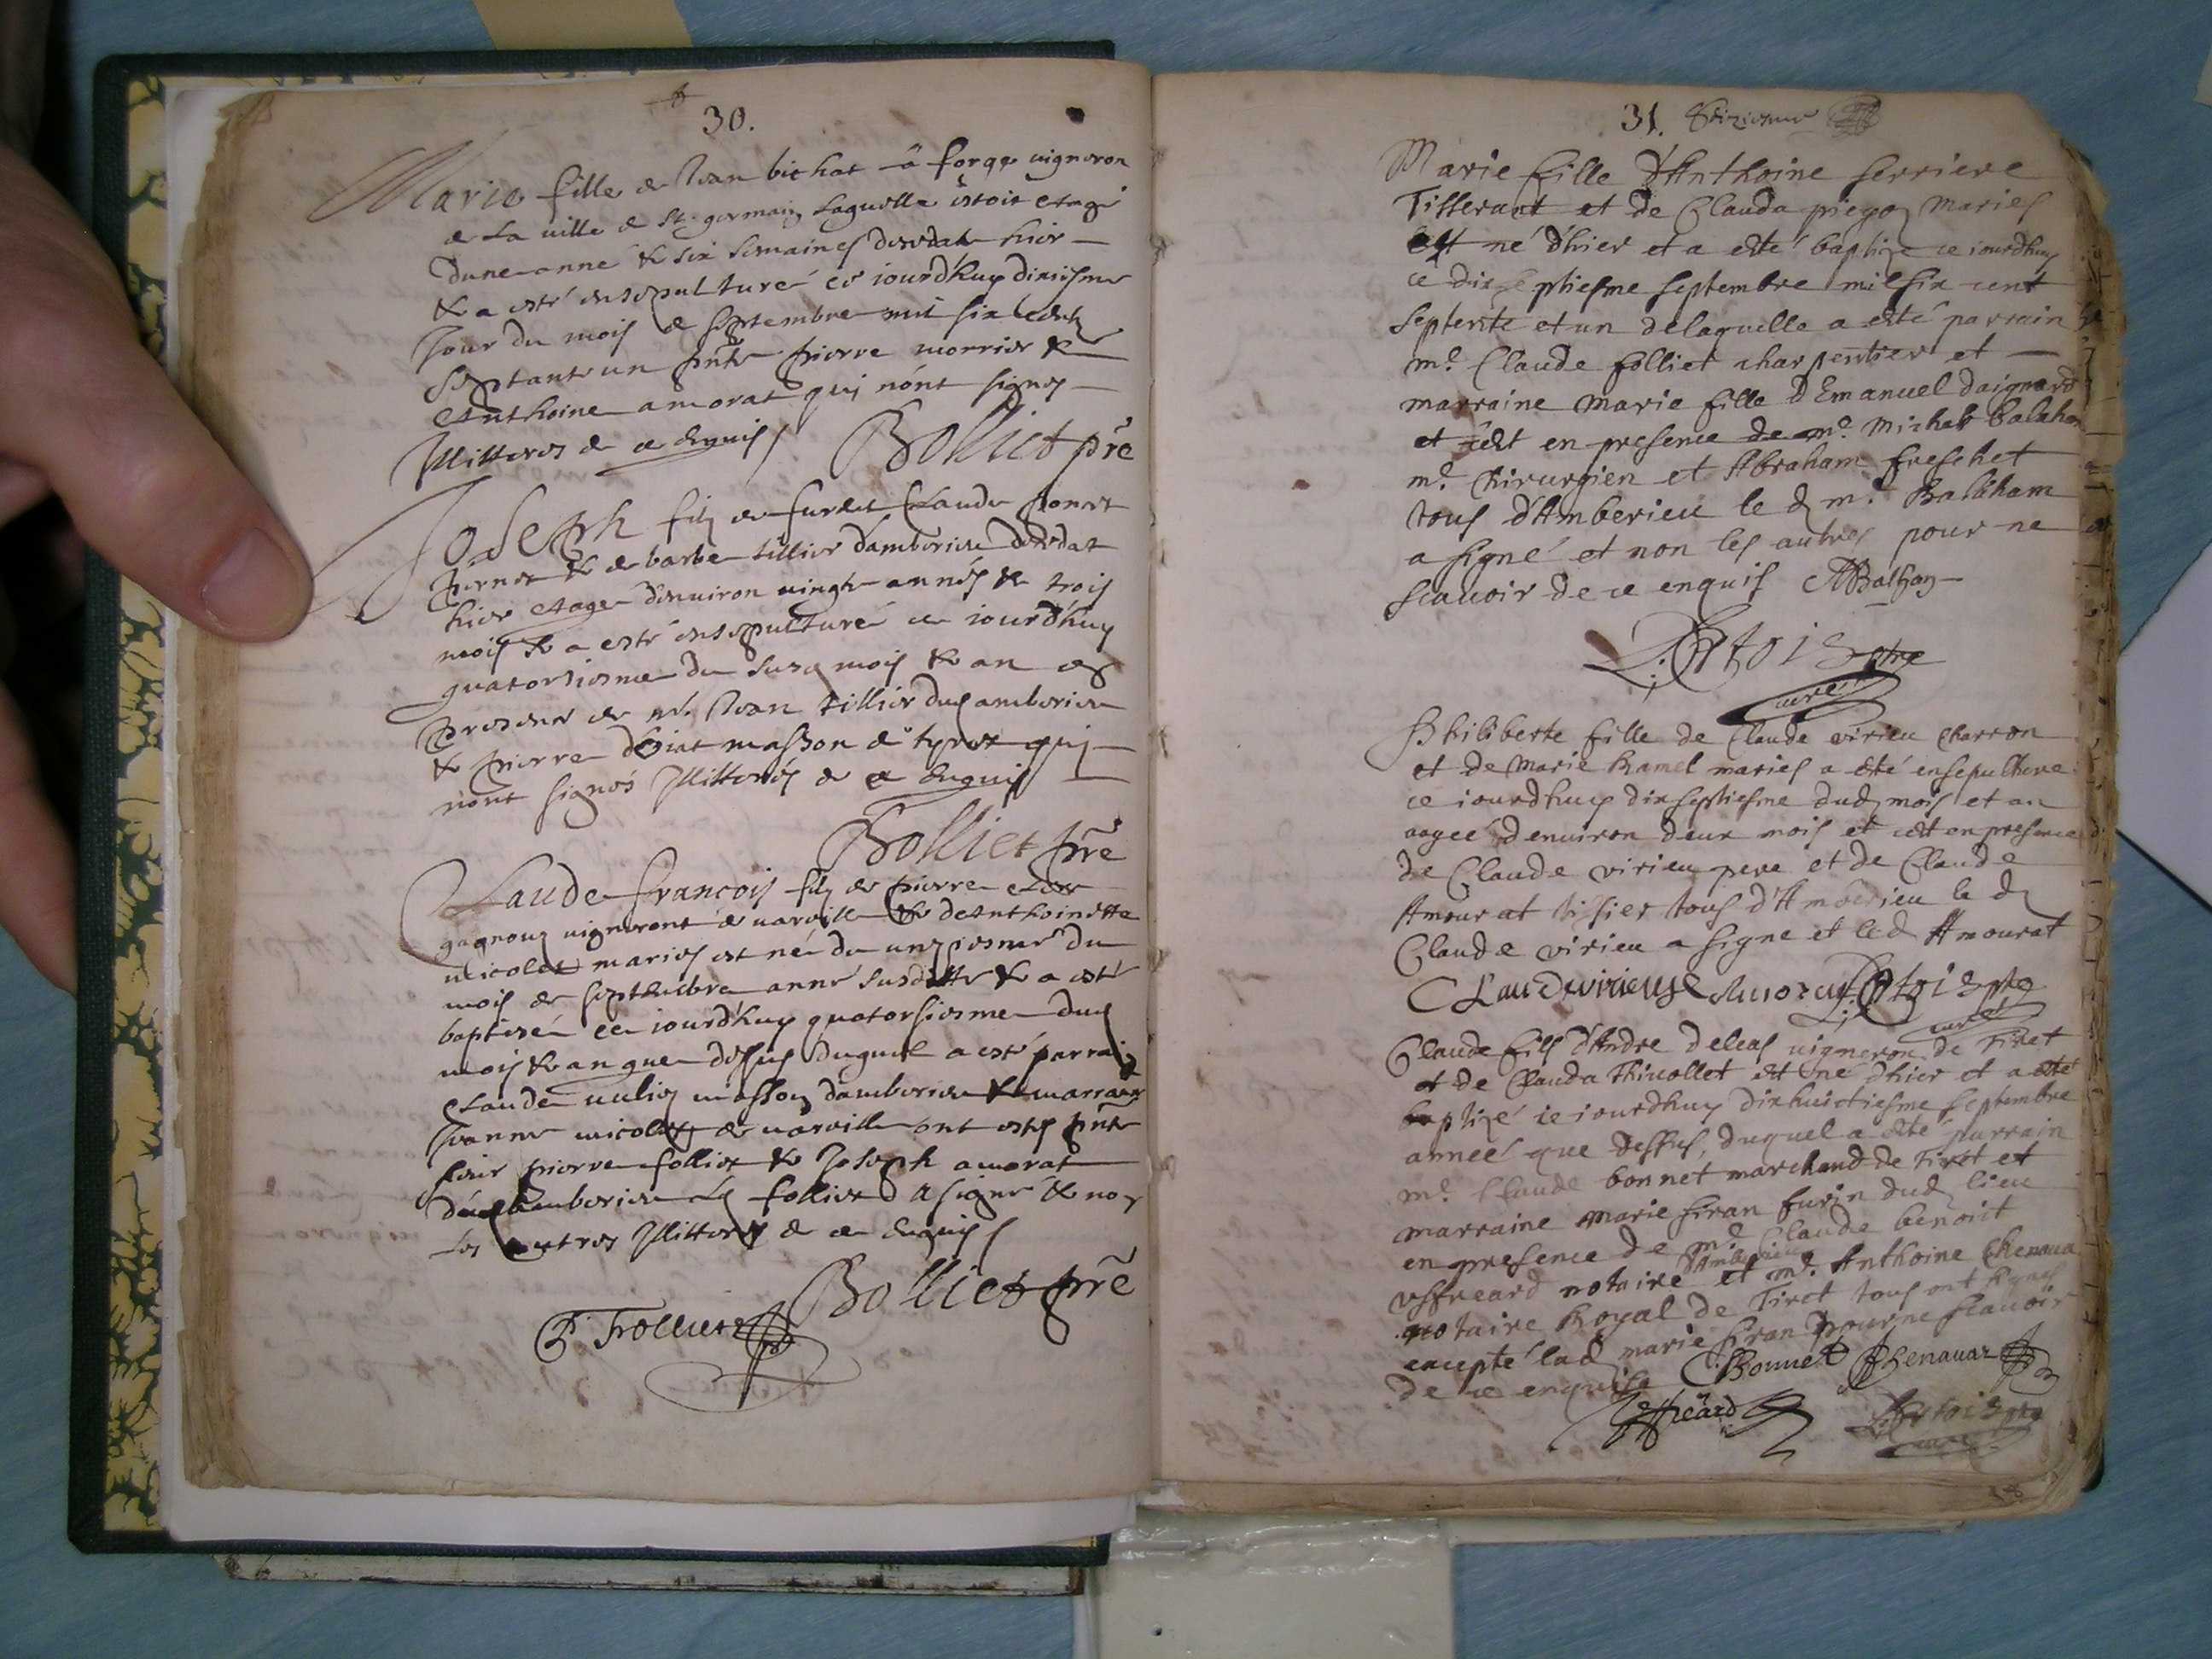 30.
Marie fille de Jean bichat â forge vigneron
de la ville de St. germain laquelle estoit etagé
dune anné & six semaines decedat hier
& a esté ensepulturé ce iourd'huy dixiesme
Jour du mois de septembre mil six cents
septante un pnts pierre morrier &
Anthoine amorat qui nónt signes
Illitteres de ce enquis Bolliet pre
Joseph filz de furent Claude ponet
pernet & de barbe tillier damberieu decedat
hier etage denviron vingt années & trois
mois & a esté ensepulturé ce iourd'huy
quatorsiesme du susd mois & an en
presence de mr. Jean tillier dud amberieu
& pierre masson de tyret qui
nónt signés Illitterés de ce enquis
Bolliet pre
Claude francois filz de pierre
gagnoux vigneront de vareille & de Anthoinette
nicolet mariés est né du unziesme du
mois de septembre anné susditte & a esté
baptisé ce iourd'huy quatorsiesme dud
mois & an que dessus duquel a esté parrain
Claude masson damberieu & marraine
Jeanne nicolet de vareille ont estes pnts
sieur pierre folliet & Joseph amorat
dud amberieu led folliet a signé & non
les autres Illitterés de ce enquis
Bolliet pre
P. Folliet
31.
Marie fille d'Anthoine serriere
Tisserant et de Clauda mariés
est né d'hier et a esté baptize ce iourdhuy
ce dixseptiesme septembre mil six cent
septente et un delaquelle a esté parrain
mr. Claude folliet charpentier et
marraine Marie fille d'Emanuel daignard
et cest en presence de mr. Michel Balahan
mr. chirurgien et Abraham freschet
tous d'Amberieu le d mr. Balaham
a signé et non les autres pour ne
scavoir de ce enquis
Artois pbre
curé
Philiberte fille de Claude virieu charron
et de Marie hamel mariés a esté ensepulture
ce iourdhuy dixseptiesme dud mois et an
aagée denviron deux mois et cest en presence
de Claude virieu pere et de Claude
Amourat tisier tous d'Amberieu le d
Claude virieu a signe et led Amourat
Claude virieux C Amorat Artois pbre
curé
Claude fils d'Andre deleas vigneron de Tiret
et de Clauda Thivollet est né d'hier et a esté
baptizé ce iourdhuy dixhuictiesme septembre
année que dessus, duquel a esté parrain
mr. Claude bonnet marchand de Tiret et
marraine Marie firan furin dud lieu
en presence de mr. Claude benoict
uffreard notaire d'Amberieu et mr. Anthoine Chenavas
notaire Royal de Tiret tous ont signes
excepté lad marie firan pour ne scavoir
de ce enquise Bonnet Chenavaz
Jeffreard Artois pbre
curé